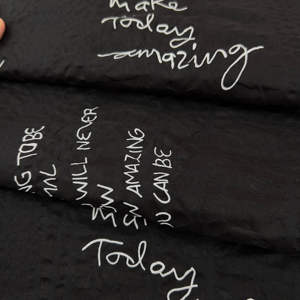 make
Today
amazing
G TO BE
U WILL NEVER
W
W AMAZING
U CAN BE
Today